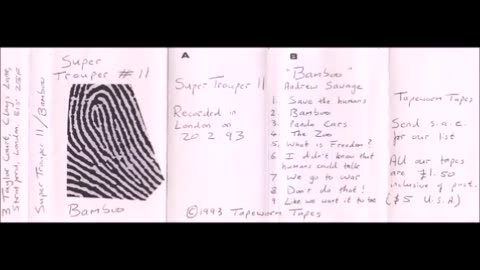 3 Taylor Court, Clays Lane,
Stratford, London E15
Super Trouper 11 / Bamboo
Super
Trouper # 11
Bamboo
A
Super Trouper 11
Recorded in
London on
20 2 93
©1993 Tapeworm Tapes
B
"Bamboo"
Andrew Savage
1 Save the humans
2 Bamboo
3 Panda Cars
4 The Zoo
5 What is Freedom?
6 I didn't know that
humans could talk
7 We go to war
8 Don't do that!
9 Like we want it to be
Tapeworm Tapes
Send s.a.e.
for our list
All our tapes
are £1.50
inclusive of post.
($5 U.S.A)